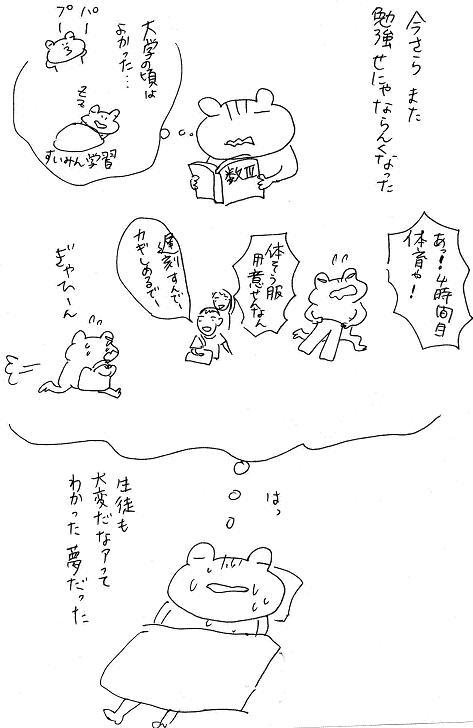 今さら また
勉強せにゃならんくなった
パー
プー
大学の頃は
よかった…
すいみん学習
数Ⅲ
あっ!4時間目
体育や!
体そう服
用意せんなん
遅刻すんでー
カギしめるでー
ぎゃひーん
はっ
生徒も
大変だなアって
わかった 夢だった